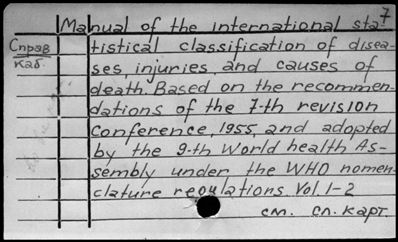 Manual of the international sta-
7
Справ
каб.
tistical classification of disea-
ses, injuries, and causes of
death. Based on the recommen-
dations of the 7-th revision
Conference, 1955, and adopted
by the 9-th World health As-
sembly under the WHO nomen-
clature regulations. Vol. 1-2
см. сл. карт.